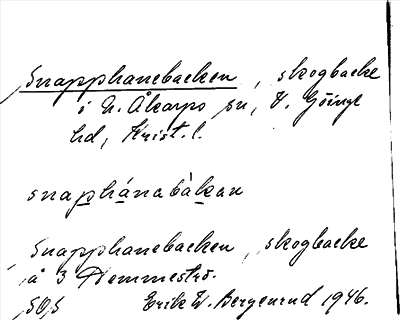 Snapphanebacken, skogbacke
i N. Åkarps sn, V. Göinge
hd, Krist. l.
snaphánabàkan
Snapphanebacken, skogbacke
å 3 Demmeströ.
SOS Erik W. Bergenrud 1946.